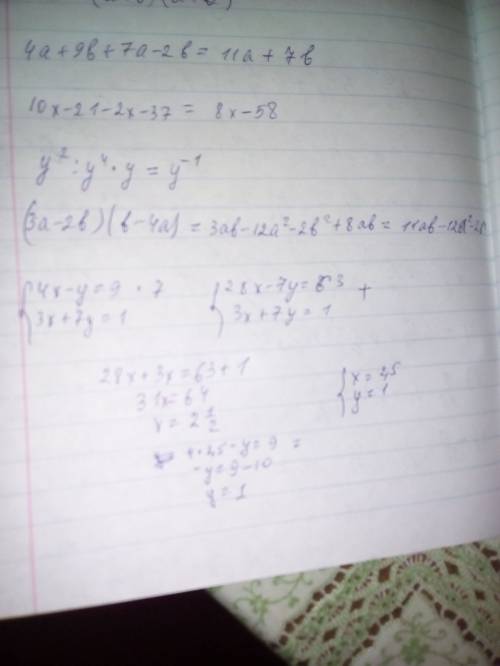 4a+9b+7a-2b= 11a+7b
10x-21-2x-37= 8x-58
y²:y⁴·y=y⁻¹
(3a-2b)(b-4a)=3ab-12a²-2b²+8ab=11ab-12a²-2b²
{4x-y=9 ·7 {28x-7y=63 +
{3x+7y=1 {3x+7y=1
28x+3x=63+1
31x=64
x=2 1/2
{x=2,5
{y=1
4·2,5-y=9 =
-y=9-10
y=1